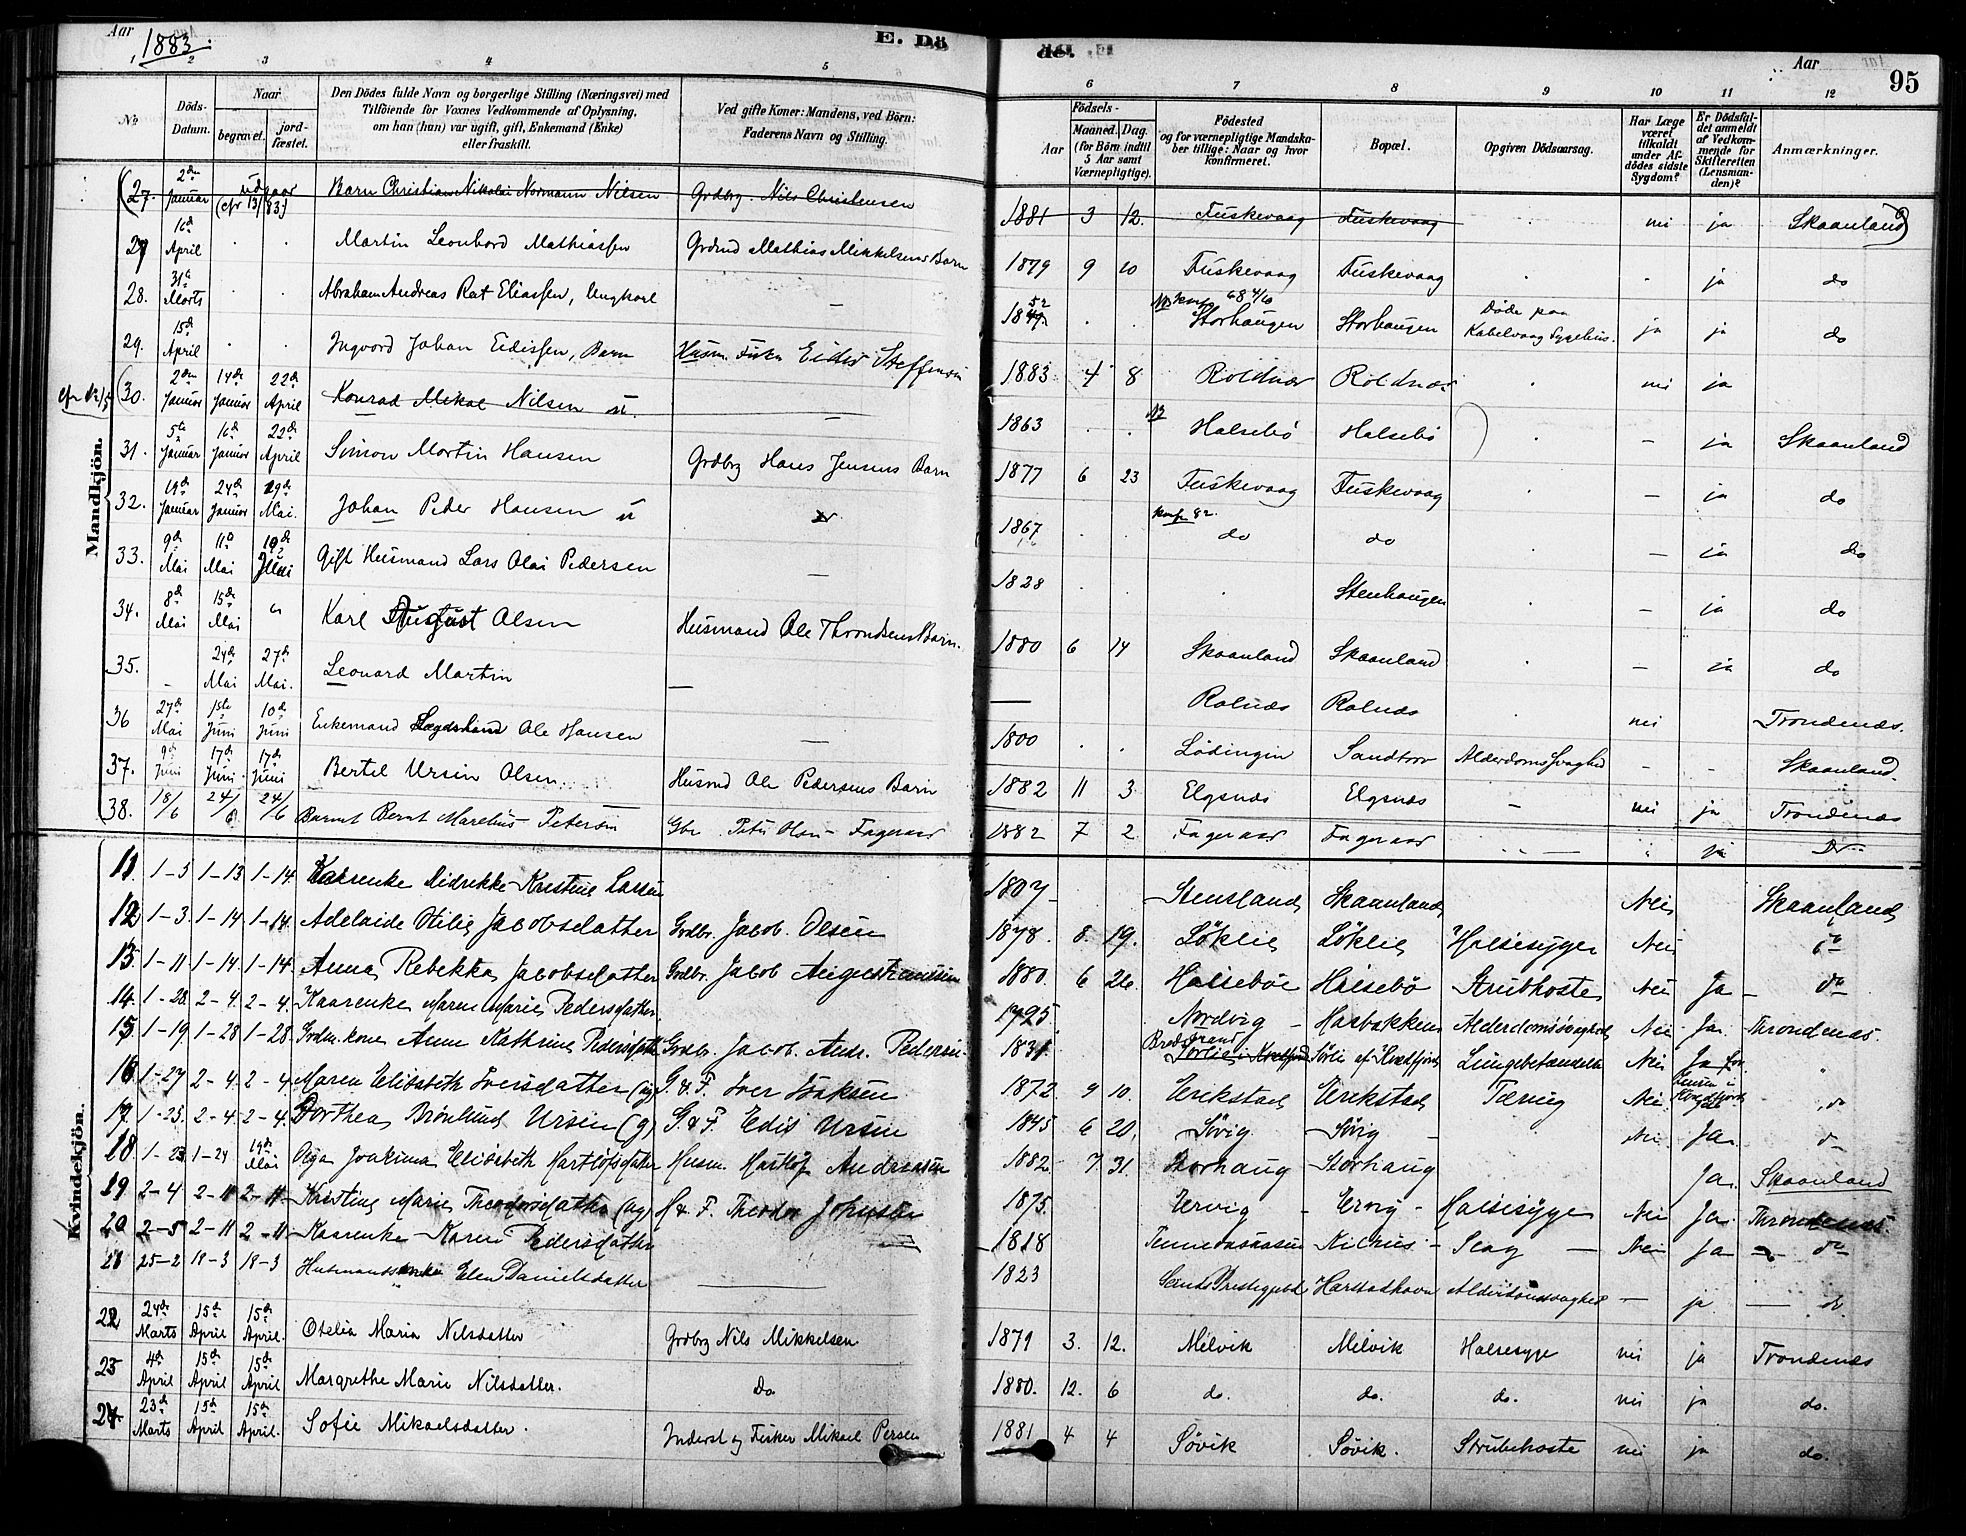 Aar 1883.
E. Dö
de. E.
Aar
95
1 2 3 4 5 6 7 8 9 10 11 12
No
Döds-Datum.
Naar
begravet.
jordfæstet.
Den Dödes fulde Navn og borgerlige Stilling (Næringsvei) med
Tilföiende for Voxnes Vedkommende af Oplysning,
om han (hun) var ugift, gift, Enkemand (Enke)
eller fraskilt.
Ved gifte Koner: Mandens, ved Börn:
Faderens Navn og Stilling.
Födsels-
Aar
Maaned. Dag.
(for Börn indtil
5 Aar samt
Værnepligtige).
Födested
og for værnepligtige Mandska-
ber tillige: Naar og hvor
konfirmeret.
Bopæl.
Opgiven Dödsaarsag.
Har Læge
været
tilkaldt
under Af-
dödes sidste
Sygdom?
Er Dödsfal-
det anmeldt
af Vedkom-
mende for
Skifteretten
(Lensman-
den)?
Anmærkninger.
Mandkjön.
(27. 2den Januar udgaar (cfr 13/83) Barn Christian Nikolai Normann Nilsen Grdbrg. Nils Christensen 1881 3 12. Fuskevaag Fuskevaag nei ja Skaanland)
27 16d April Martin Leonhard Mathiassen Grdmd Mathias Mikkelsens Barn 1879 9 10 Fuskevaag Fuskevaag ja do
28. 31te Marts Abraham Andreas Rat Eliassen, Ungkarl — 1852 konf. 68 4/10 Storhaugen Storhaugen Döde paa Kabelvaag Sygehus. ja ja do
29. 15d April Ingvord Johan Eidissen, Barn Husm. Fisker Eidis Steffensen 1883 4 8 Roldnæs Roldnæs nei ja
cfr No 15 (30. 2den Januar 14de Januar 22de April Konrad Mikal Nilsen u. — 1863 Halsebö Halsebö — ja Skaanland
31. 5te Januar 16d Januar 22d April Simon Martin Hansen Grdbrg Hans Jensens Barn 1877 6 23 Fuskevaag Fuskevaag — ja do
32. 19d Januar 24d Januar 19de Mai. Johan Peder Hansen u 1867 konf. 82. do do — ja do
33. 9de Mai 11te Mai 19de Juni Gift Husmand Lars Olai Pedersen — 1828 Stenhaugen — ja do
34. 8de Mai 15de Mai " Karl August Olsen Husmand Ole Throndsens Barn. 1880 6 14 Skaanland Skaanland — ja do
35. — 24de Mai 27de Mai. Leonard Martin — — Rolnæs Rolnæs nei Trondenæs.
36 27de Mai 1ste Juni 10de Juni Enkemand Lægdsmand Ole Hansen — 1800 Lödingen Sandtorv Alderdomssvaghed — — Skaanland.
37. 9de Juni 17de Juni 17de Juni Bertel Ursin Olsen Husmd Ole Pedersens Barn 1882 11 3 Elgsnæs Elgsnæs — nei ja Trondenæs
38. 18/6 24/6 24/6 Barnet Bernt Marelius Petersen Gbr. Peter Olsen Fageraas 1882 7 2 Fageraas Fageraas — " ja Do
Kvindekjön.
11. 1-3 1-13 1-14 Kaarenke Didrikke Kristine Larsen 1807 Stensland Skaanland Nei Skaanland
12 1-3. 1-14 1-14 Adelaide Otilie Jacobsdatter Grdbr. Jacob Olsen 1878. 8. 19. Löklie Löklie Halsesyge Nei do
13. 1-11 1-14 1-14. Anna Rebekka Jacobsdatter Grdbr. Jacob Augustinussen 1880. 6 26. Halseböe Halsebö Strubhoste Nei Ja — do
14. 1-28. 2-4. 2-4. Kaarenke Maren Marie Pedersdatter. 1795. Nordvig — Haabakken Alderdomssvaghed Nei Ja. Throndenæs.
15. 1-19 1-28 1-28. Grdm. kone Anne Kathrine Pedersdatter Grdbr. Jacob Andr. Pedersen. 1831. Bredstrand Sörlie i Kvæfjord Sörli af Kvæfjord Lungebetændelse Nei Ja "
16. 1-27 2-4. 2-4. Maren Elisabeth Iversdatter (ug) G. & F. Iver Isaksen 1872. 9 10. Erikstad Erikstad Tæring Nei. "do
17. 1-23. 2-4 2-4. Dorthea Brönlund Ursin (g) G & F. Edis Ursin 1845 6 20. Sövig — Sövig — Nei Ja. do
18. 1-23. 1-24 19de Mai Olga Joakima Elisabeth Hartlofsdatter Husm. Hartlof Andreasen 1882. 7 31. Storhaug Storhaug Ja. Skaanland
19 2-4 2-11 2-11 Kristine Marie Theodorsdatter (ug) H & F. Theodor Johnsen 1875. Ervig — Ervig — Halsesyge Nei Ja. Throndenæs.
20. 2-5 2-11 2-11. Kaarenke Karen Pedersdatter — 1818 Kilnæs — Slag — Nei Ja — do
21 25-2 18-3 18-3 Husmandsenke Elen Danielsdatter — 1823 Sands Prestegjeld Harstadhavn Alderdomssvaghed — ja — do
22 24de Marts 15d April 15d April. Otelia Maria Nilsdatter Grdbrg Nils Mikkelsen 1879 3. 12. Melvik Melvik Halsesyge nei ja Trondenæs
23 4de April 15d April 15d April Margrethe Marie Nilsdatter. Do 1880. 12. 6 do. do. do. nei ja do.
24. 23d Marts 15d April 15d April. Sofie Mikaelsdatter. Inderst og Fisker Mikael Persen 1881 4 4 Sövik Sövik. Strubehoste nei ja do.